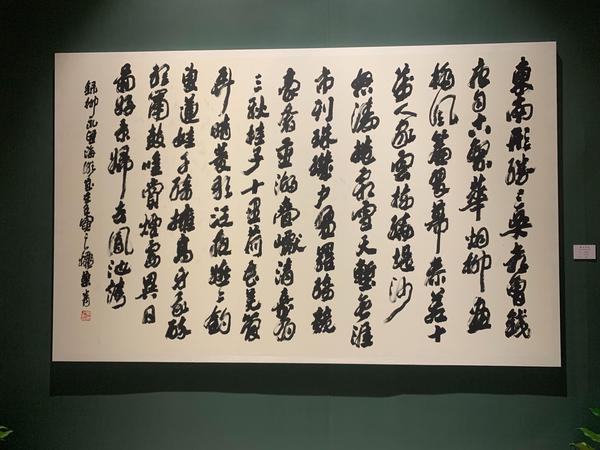 東南形勝三吳都會錢
唐自古繁華烟柳畫
橋風簾翠幕參差十
萬人家雲樹繞堤沙
怒濤捲霜雪天塹無涯
市列珠璣戶盈羅綺競
豪奢重湖疊巘清嘉有
三秋桂子十里荷花羌管
弄晴菱歌泛夜嬉嬉釣
叟蓮娃千騎擁高牙乘醉
聽簫鼓吟賞煙霞異日
圖將好景歸去鳳池誇
錄柳永望海潮